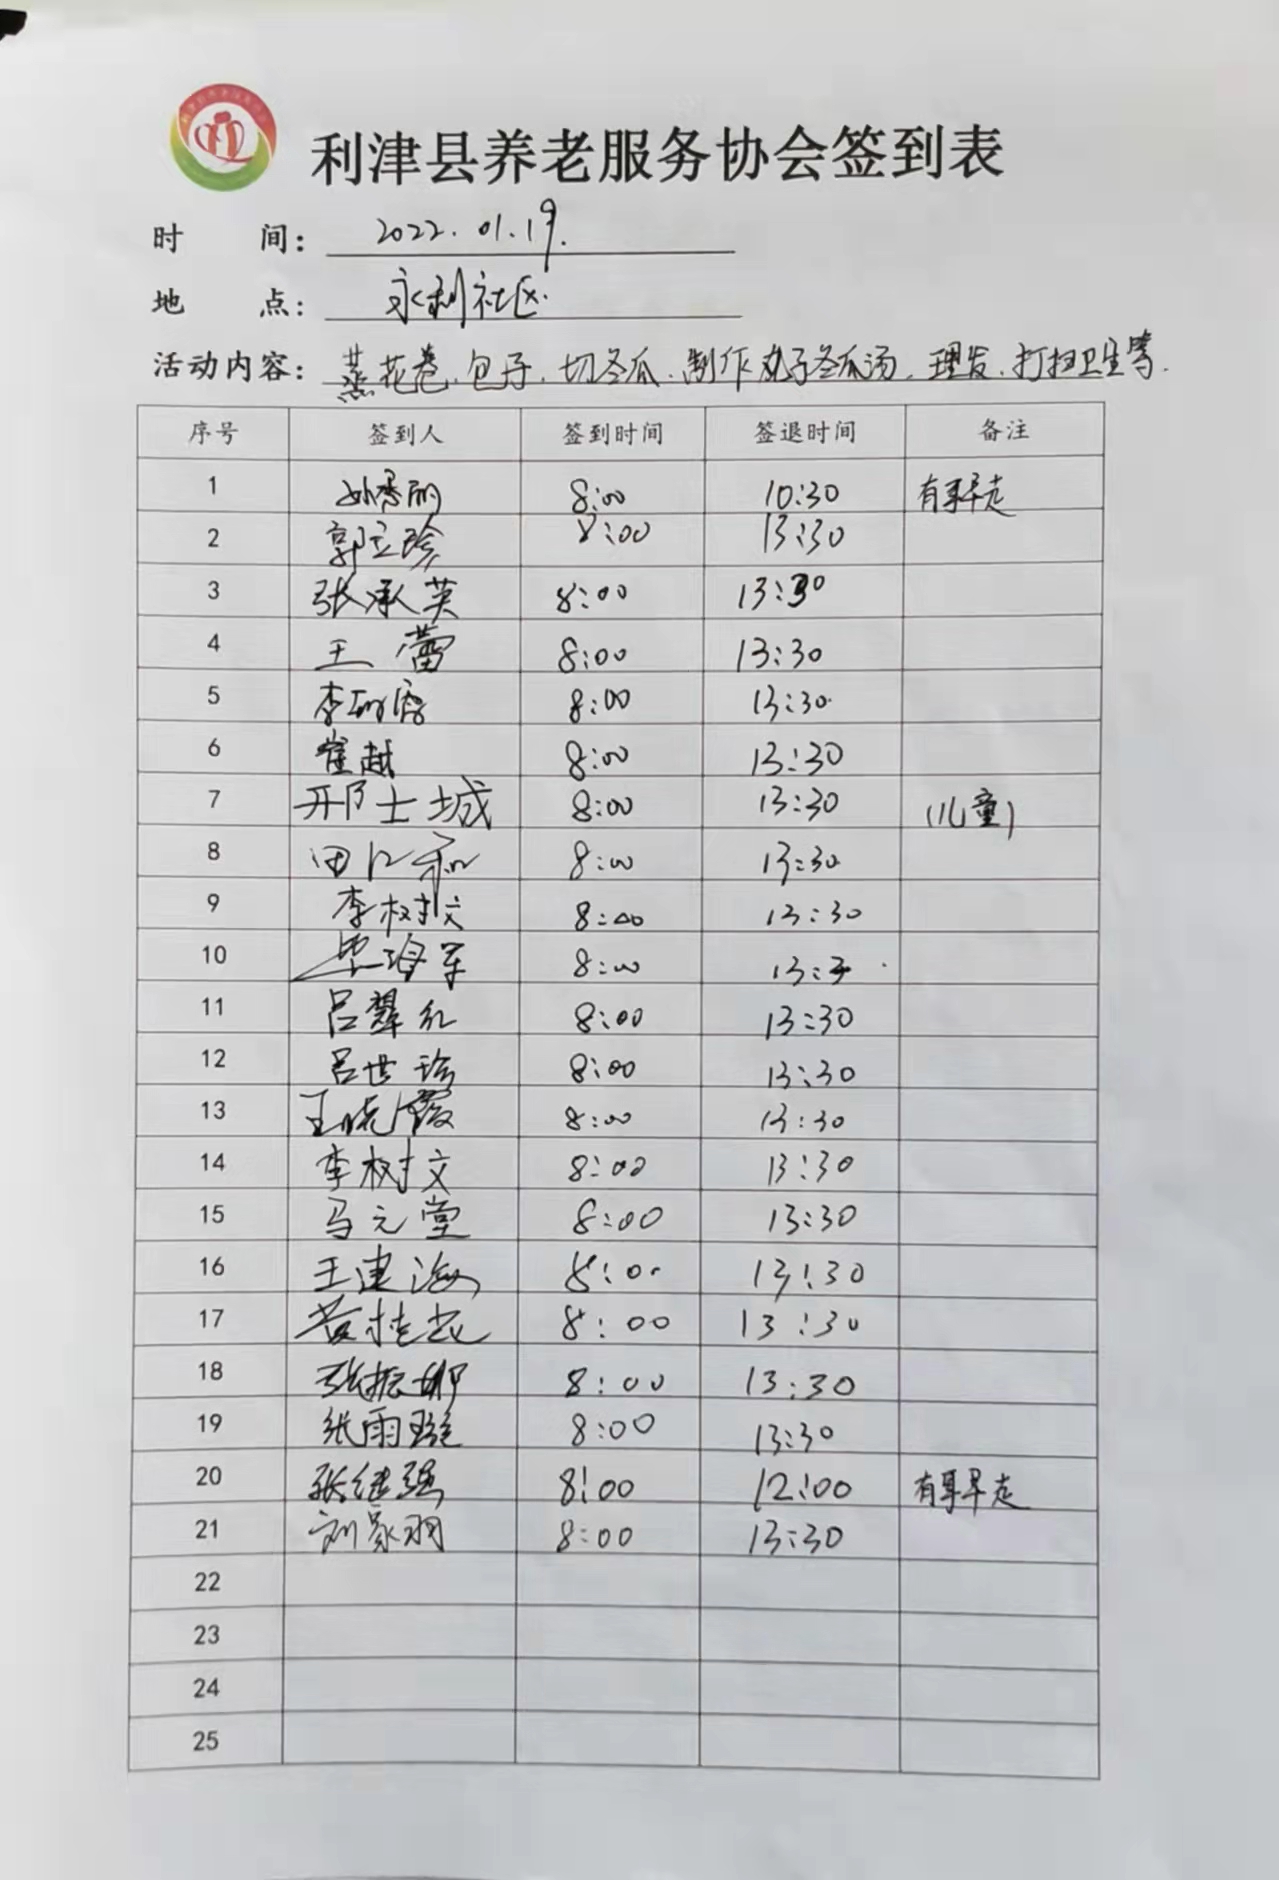 利津县养老服务协会签到表
时 间: 2022.01.19.
地 点: 永利社区.
活动内容: 蒸花卷、包子、切冬瓜、制作丸子冬瓜汤、理发、打扫卫生等.
序号 签到人 签到时间 签退时间 备注
1 8:00 10:30 有事早走
2 郭立珍 8:00 13:30
3 张承英 8:00 13:30
4 王蕾 8:00 13:30
5 李 8:00 13:30
6 崔越 8:00 13:30
7 邢士城 8:00 13:30 (儿童)
8 田 8:00 13:30
9 李树文 8:00 13:30
10 8:00
11 吕翠红 8:00 13:30
12 吕世珍 8:00 13:30
13 王晓霞 8:00 13:30
14 李树文 8:00 13:30
15 马元堂 8:00 13:30
16 王建海 8:00 13:30
17 8:00 13:30
18 张振娜 8:00 13:30
19 张雨璇 8:00 13:30
20 张继强 8:00 12:00 有事早走
21 刘家羽 8:00 13:30
22
23
24
25